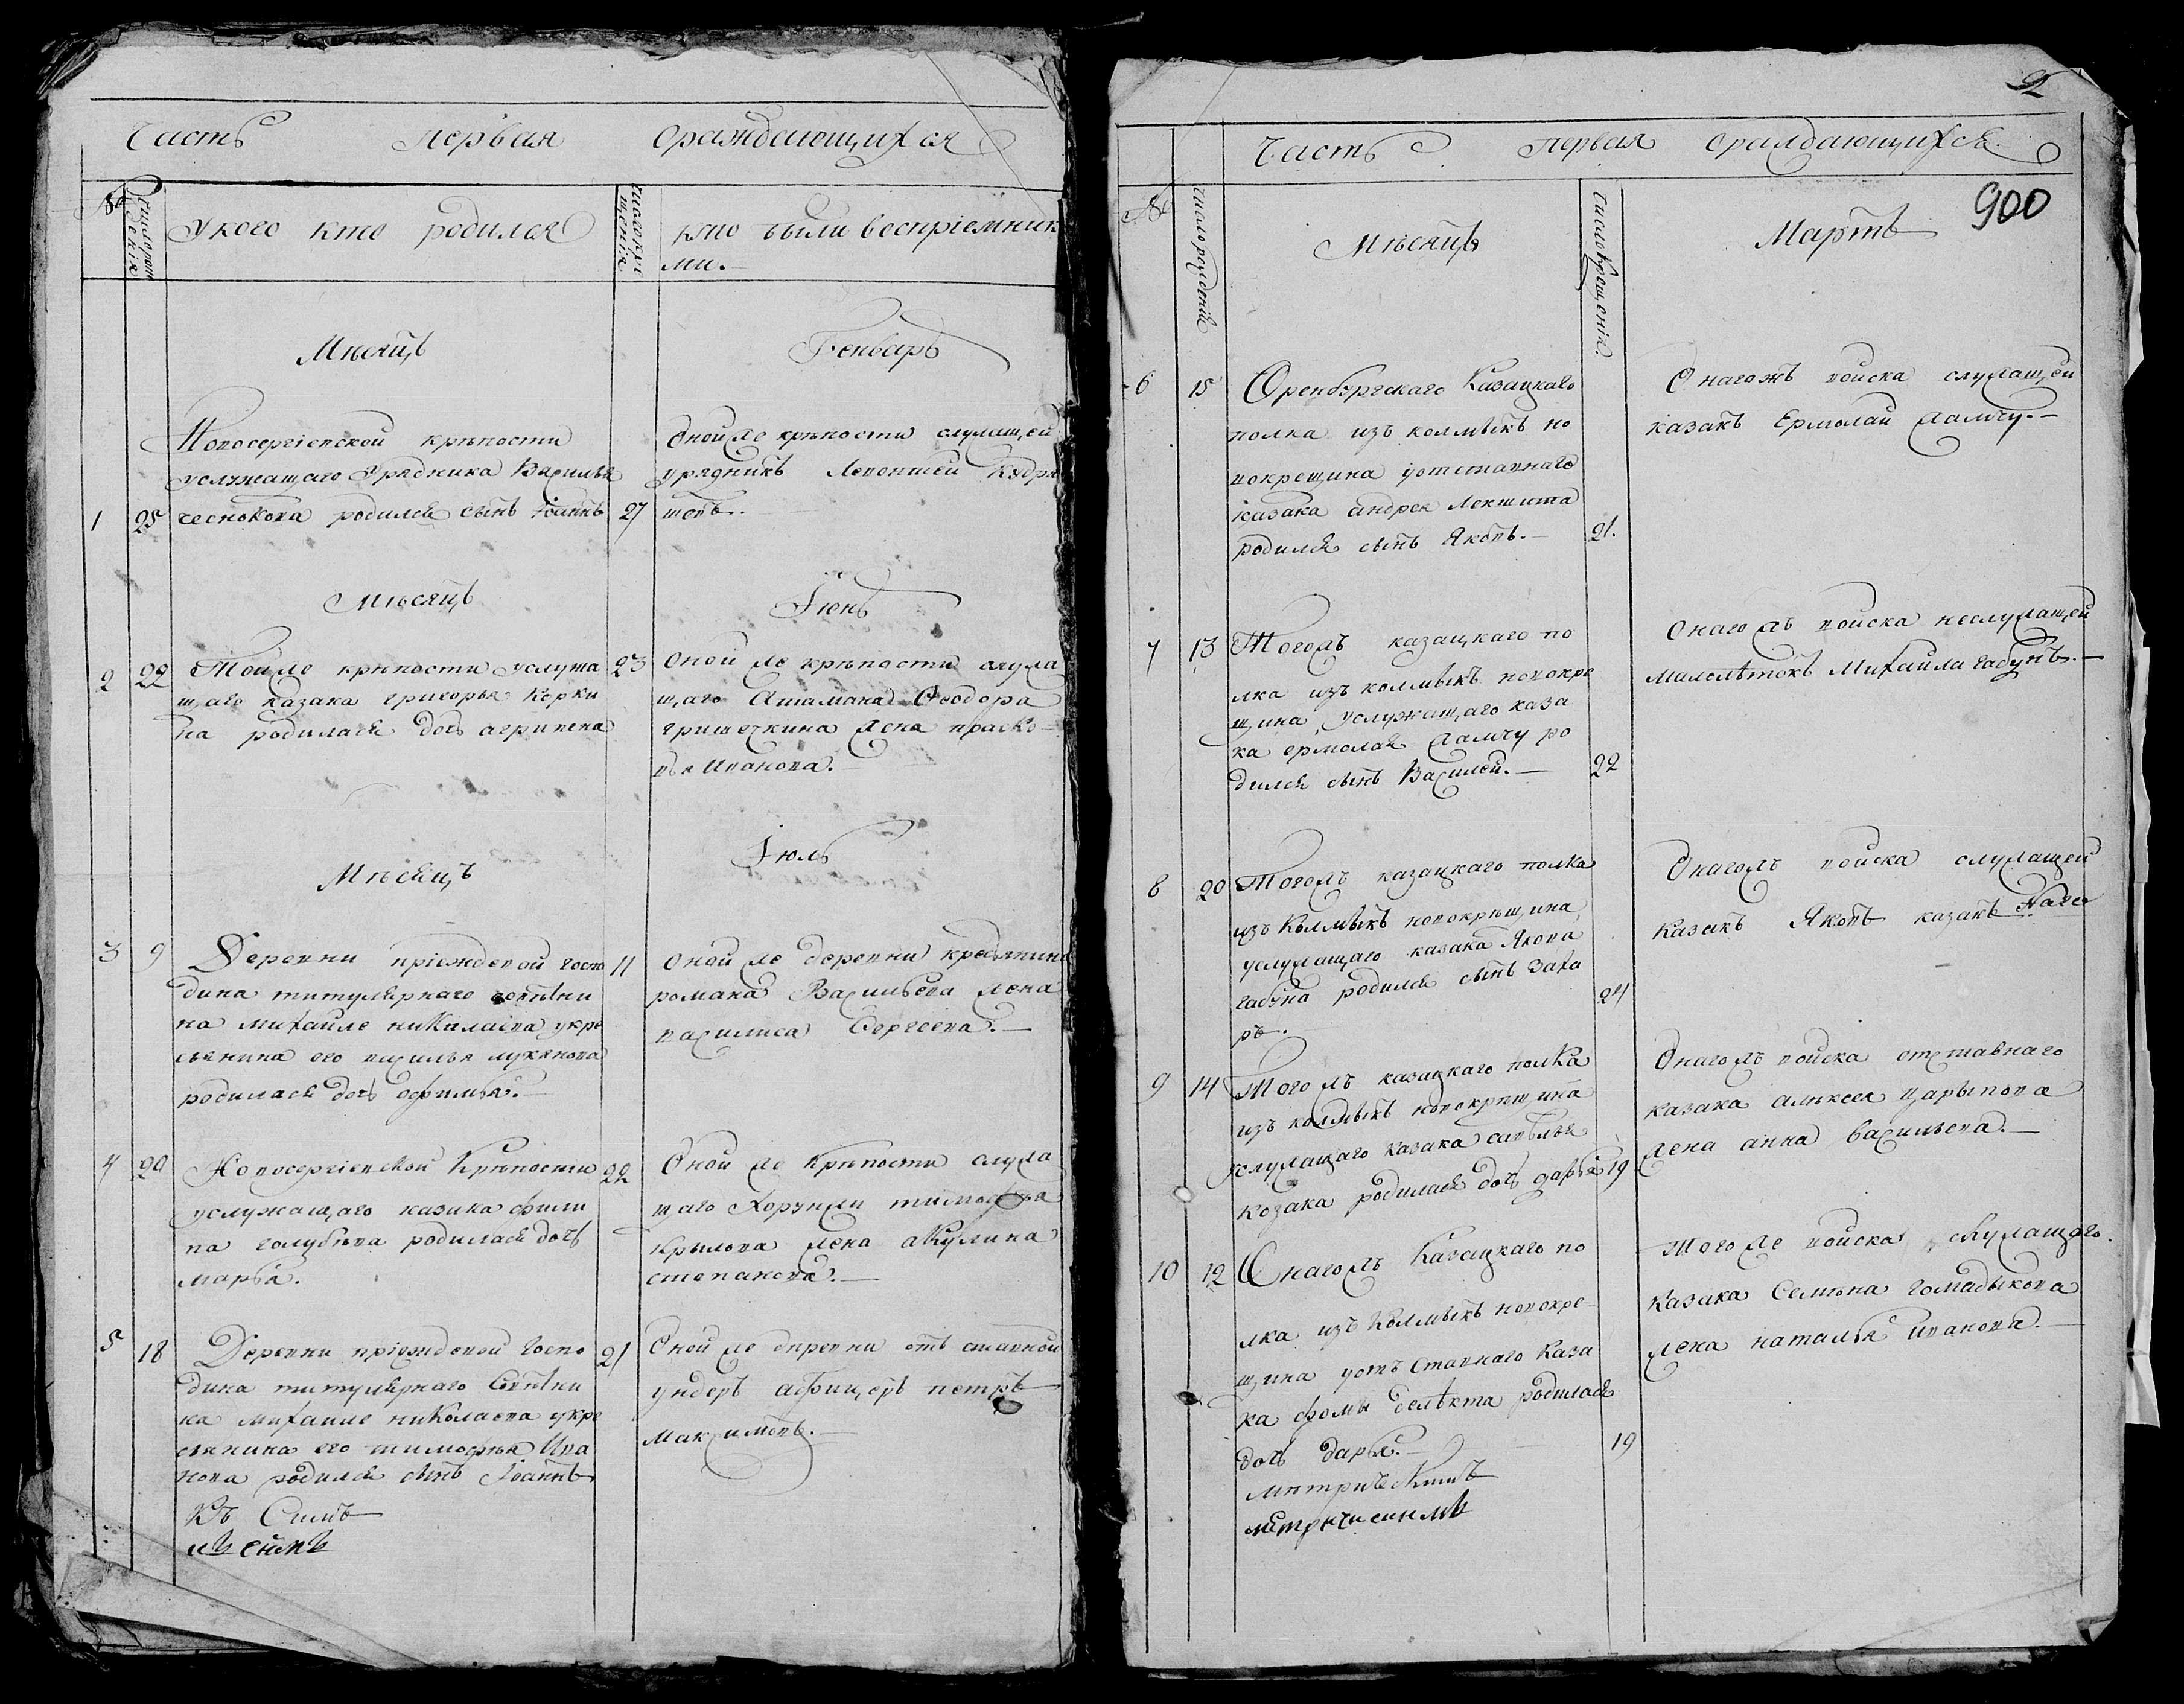 Часть первая ораждающихся
№
Число рож
дения
У кого кто родился
число кре
щения
кто были воспріемник
ми.
Мѣсяцъ Генварь
Новосергіевской крѣпости
услужащаго Урядника Василья
1 25 чеснокова родился сынъ Іоаннъ 27
Оной же крѣпости служащей
урядникъ Леонтей Кудря
шовъ.
Мѣсяцъ Іюнь
2 22 Той же крѣпости услужа 23
щаго казака григорья
на родилася дочь агрипена
Оной же крѣпости служа
щаго Атамана Феодора
гришечкина жена праско
вья Иванова.
Мѣсяцъ Іюль
3 9 Деревни пріежденой госпо 11
дина титулярнаго совѣтни
ка михаиле николаева укре
стьянина его василья лукянова
родилася дочь офимья.
Оной же деревни кресьянина
романа Васильева жена
василиса Сергеева.
4 20 Новосергіевской Крѣпости 22
услужащаго казака фили
па голубева родилася дочь
марья.
Оной же крѣпости служа
щаго Хорунжи тимофея
крылова жена акулина
степанова.
5 18 Деревни пріежденой госпо 21
дина титулярнаго Совѣтни
ка михаиле николаева укре
стьянина его тимофея Ива
нова родился сынъ Іоаннъ
Оной же дировни отъ ставной
ундеръ афицеръ петръ
максимовъ.
къ Симъ
къ симъ
2
Часть первая ораждающихся
900
№
число рожденія
Мѣсяцъ
число крещенія
Мартъ
6 15 Оренбургскаго Казацкаго
полка изъ колмыкъ но
вокрещина уотставнаго
казака андрея Мекшита
родился сынъ Яковъ. 21.
Онагожъ войска служащей
казакъ Ермолай Далчу.
7 13 Тогожъ казацкаго по
лка изъ колмыкъ новокре
щина услужащаго каза
ка ермолая Далчу ро
дился сынъ Василей. 22
Онагожъ войска неслужащей
малолѣтокъ Михаила габунъ.
8 20 Тогожъ казацкаго полка
изъ Колмыкъ новокрѣщина
услужащаго казака Якова
габуна родился сынъ Заха
ръ. 24
Онагожъ войска служащей
казакъ Яковъ казакъ
9 14 Тогожъ казацкаго полка
изъ колмыкъ новокрѣщина
услужащаго казака савѣлья
козака родилася дочь дарья 19
Онагожъ войска отставнаго
казака алексея царынова
жена анна васильева.
10 12 Онагожъ Казацкаго по
лка изъ Колмыкъ новокре
щина уотъ ставнаго Каза
ка фомы белѣкта родилася
дочь дарья. 19
Того же войска служащаго.
казака Семѣна гомадыкова
жена наталья иванова.